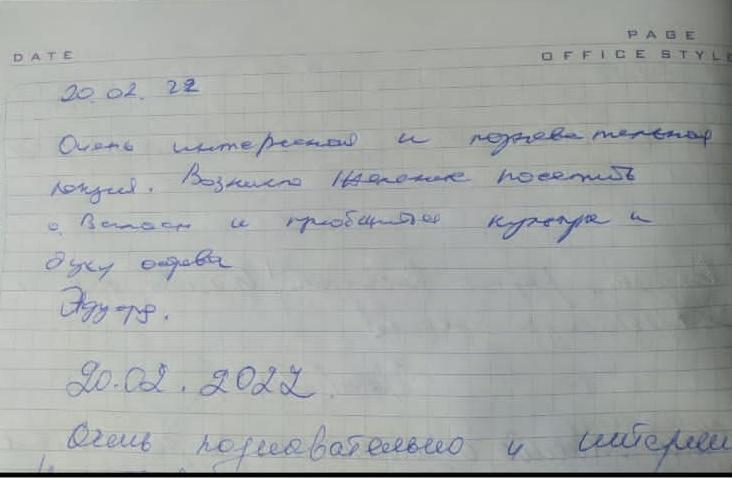 PAGE
DATE
OFFICE STYLE
20.02.22
Очень интересная и познавательная
лекция. Возникло желание посетить
о. Валаам и приобщится культуре и
духу острова
Эдуард.
20.02.2022
Очень познавательно и